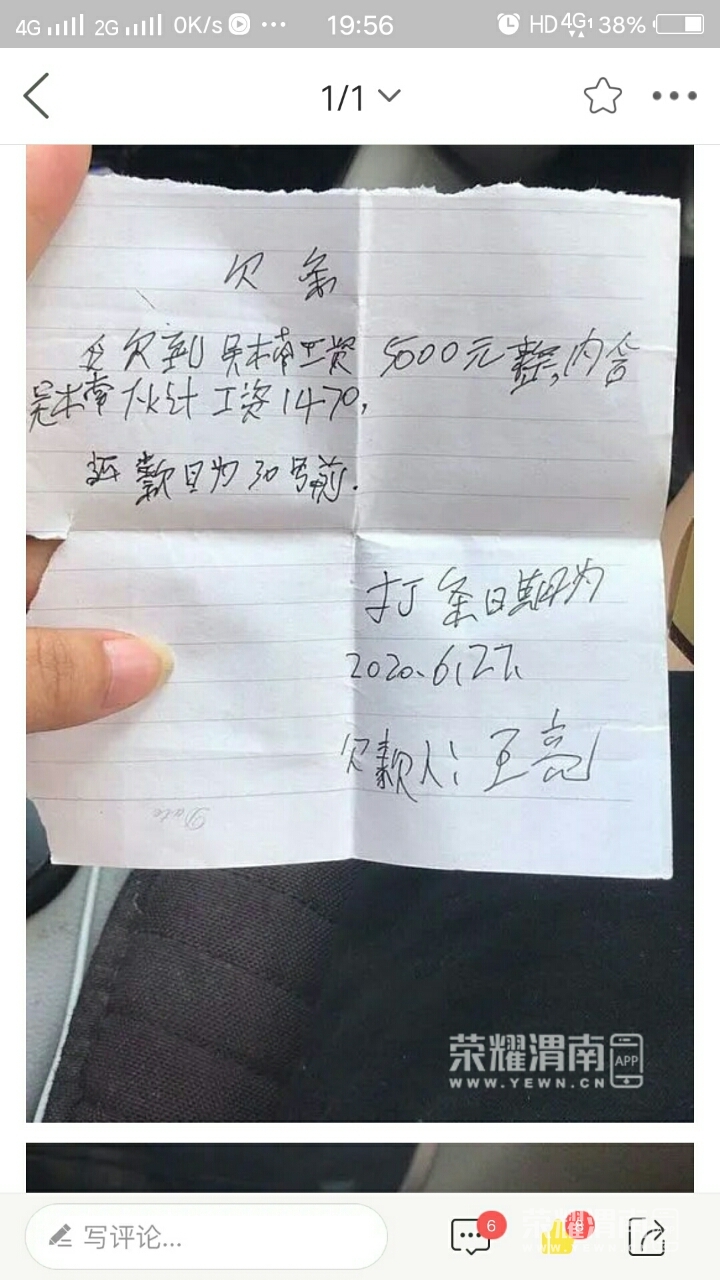 4G 2G 0K/s ··· 19:56 HD 4G 1 38%
1/1
欠条
今欠到吴木常工资5000元整,内含
吴木常伙计工资1470,
还款日为30号前.
打条日期为
2020.6.27.
欠款人:王亮
Date
荣耀渭南 APP
WWW.YEWN.CN
写评论...
6
荣耀渭南